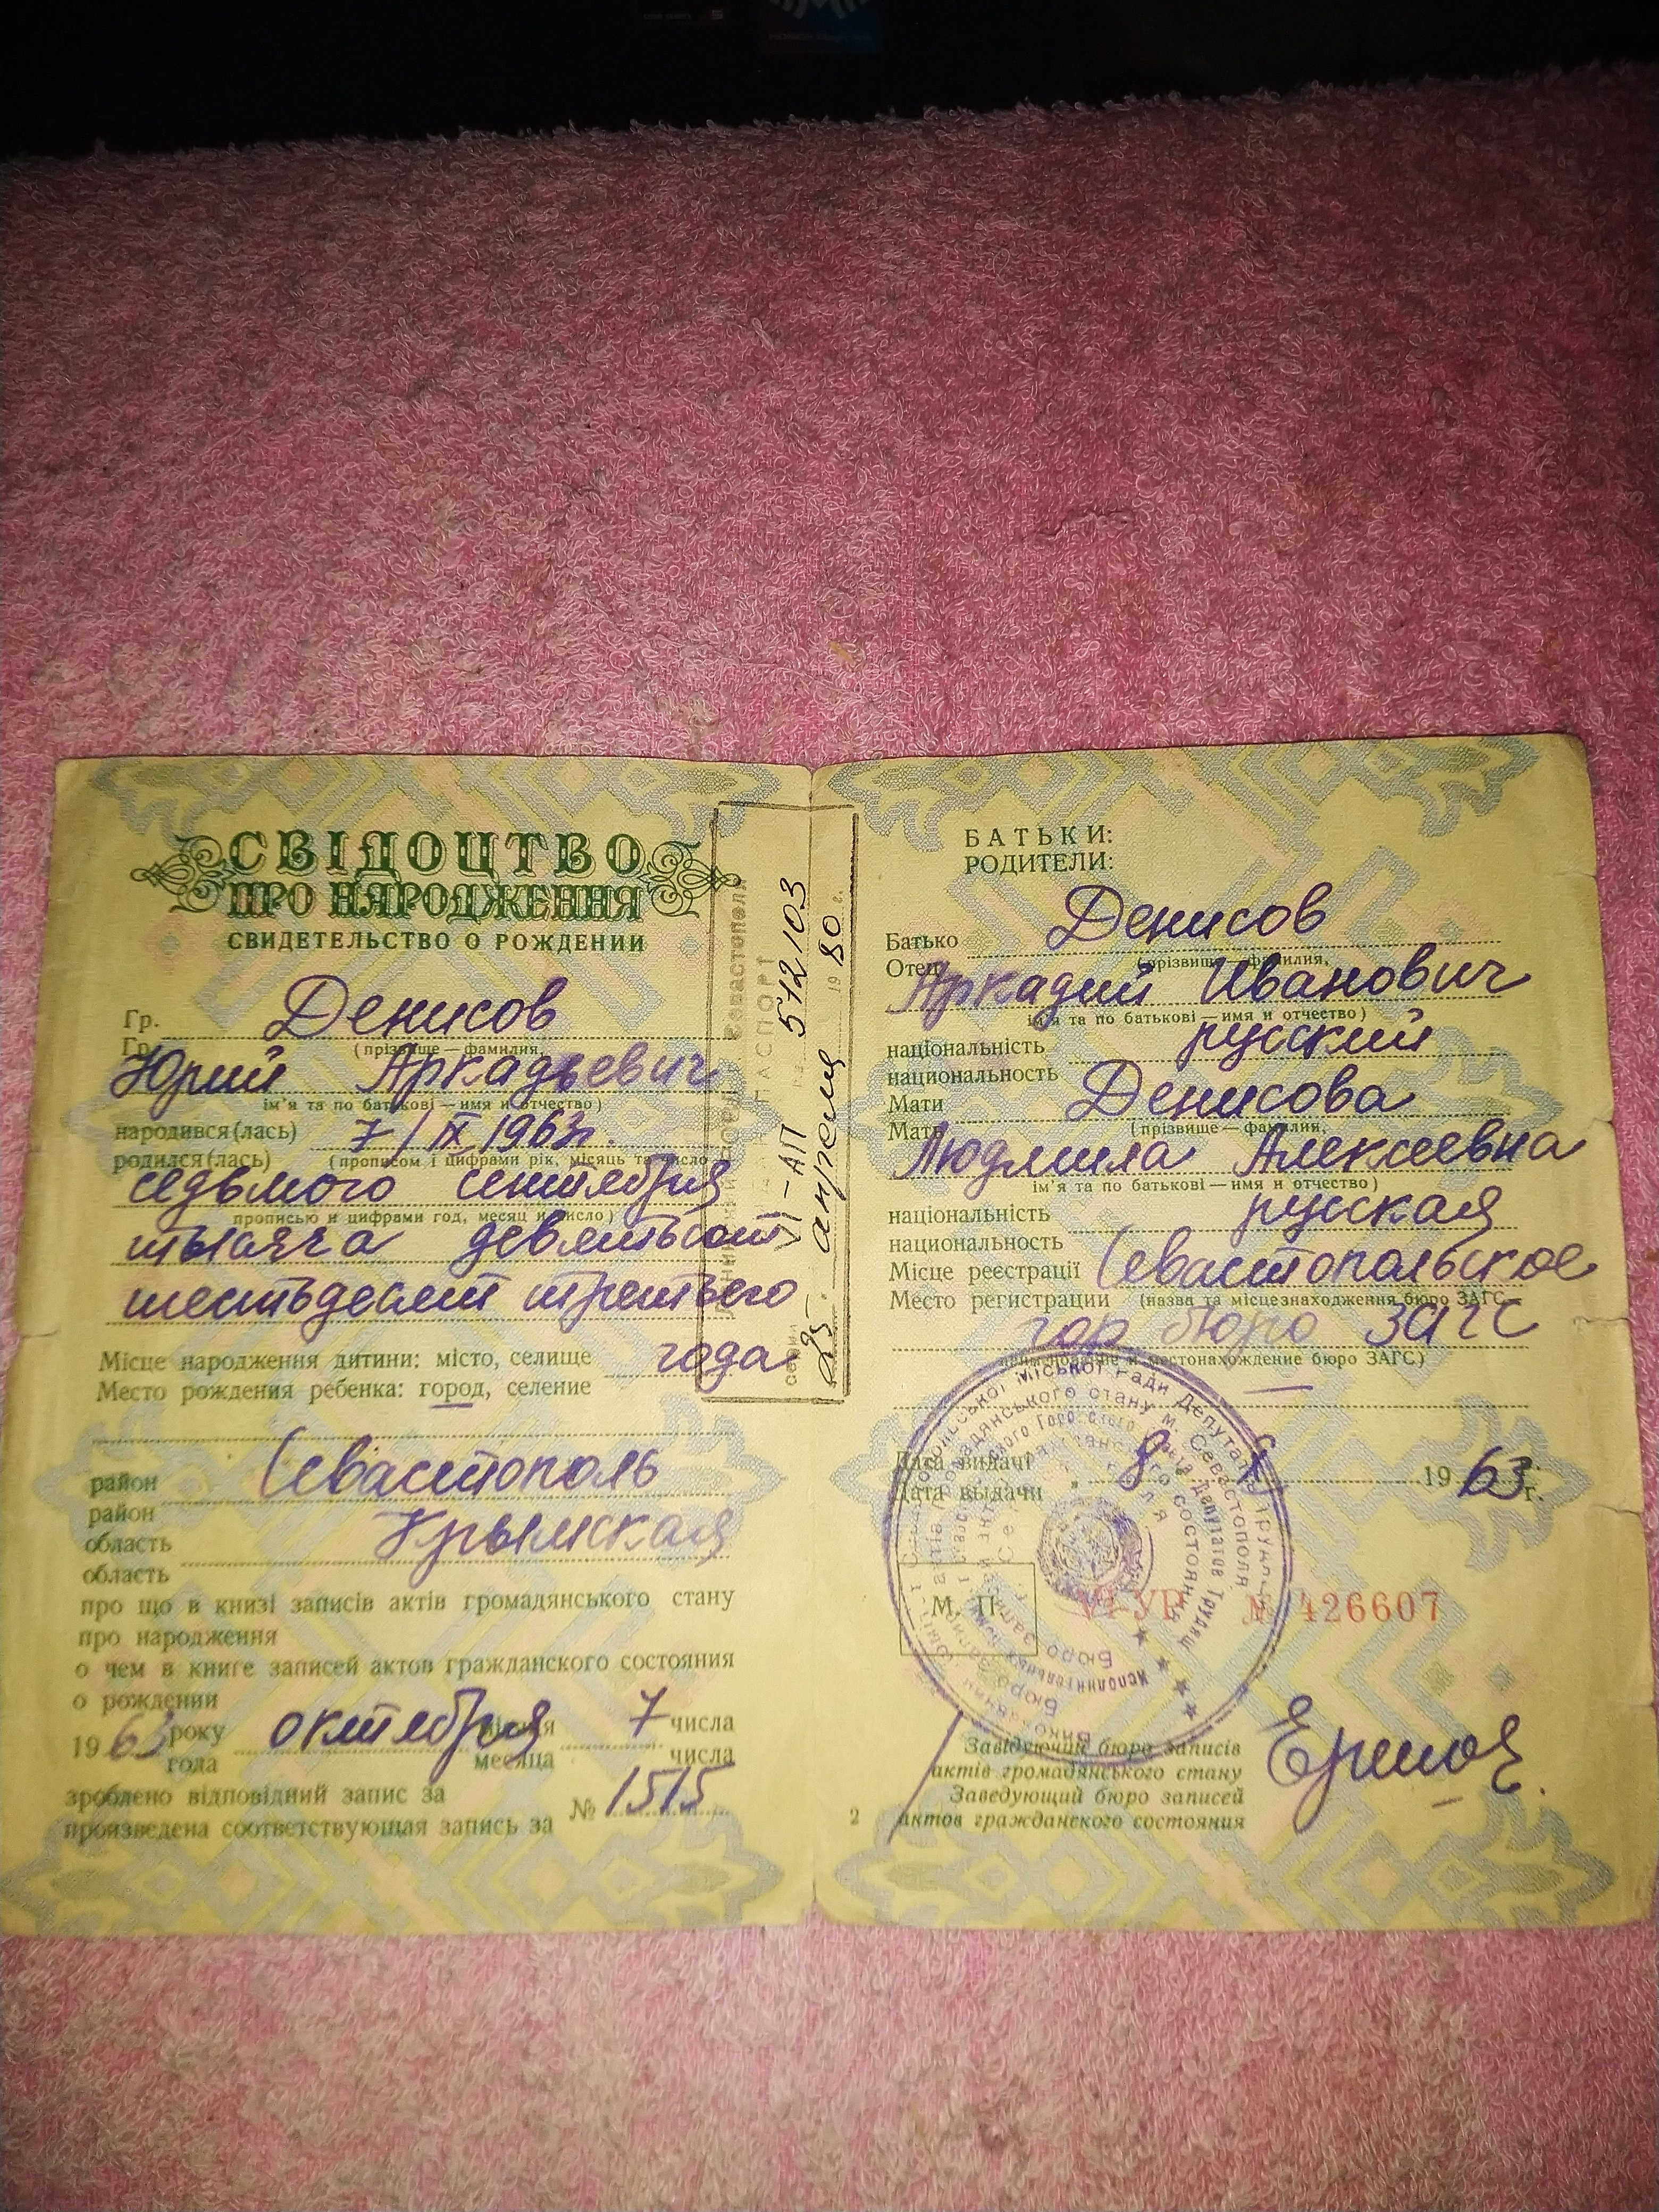 СВІДОЦТВО
ПРО НАРОДЖЕННЯ
СВИДЕТЕЛЬСТВО О РОЖДЕНИИ
Гр. Денисов
Гр. (прізвище — фамилия,
Юрий Аркадьевич
ім'я та по батькові — имя и отчество)
народився(лась) 7/IX 1963г.
родился(лась) (прописом і цифрами рік, місяць та число
седьмого сентября
прописью и цифрами год, месяц и число)
тысяча девятьсот
шестьдесят третьего
Місце народження дитини: місто, селище года
Место рождения ребенка: город, селение
район Севастополь
район
область Крымская
область
про що в книзі записів актів громадянського стану
про народження
о чем в книге записей актов гражданского состояния
о рождении
1963 року октября місяця 7 числа
года месяца числа
зроблено відповідний запис за
№ 1515
произведена соответствующая запись за
Севастополя
ПАСПОРТ
серия VI-АП 512103
25 апреля 1980 г.
БАТЬКИ:
РОДИТЕЛИ:
Батько Денисов
Отец (прізвище — фамилия,
Аркадий Иванович
ім'я та по батькові — имя и отчество)
національність русский
национальность
Мати Денисова
Мать (прізвище — фамилия,
Людмила Алексеевна
ім'я та по батькові — имя и отчество)
національність русская
национальность
Місце реєстрації Севастопольское
Место регистрации (назва та місцезнаходження бюро ЗАГС
гор бюро ЗАГС
наименование и местонахождение бюро ЗАГС)
Дата видачі 8 X 1963 г.
Дата выдачи
М. П. VI-УР № 426607
Завідуючий бюро записів
актів громадянського стану
Заведующий бюро записей
актов гражданского состояния
2